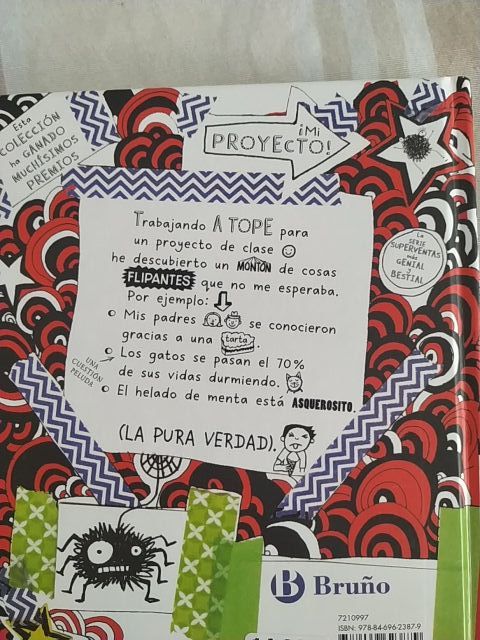 Esta
COLECCIÓN
ha GANADO
MUCHÍSIMOS
PREMIOS
¡Mi
PROYECTO!
LA
SERIE
SUPERVENTAS
más
GENIAL
y
BESTIAL
Trabajando A TOPE para
un proyecto de clase
he descubierto un MONTÓN de cosas
FLIPANTES que no me esperaba.
Por ejemplo:
Mis padres se conocieron
gracias a una tarta.
Los gatos se pasan el 70%
de sus vidas durmiendo.
UNA
CUESTIÓN
PELUDA
El helado de menta está ASQUEROSITO.
(LA PURA VERDAD).
B Bruño
7210997
ISBN: 978-84-696-2387-9